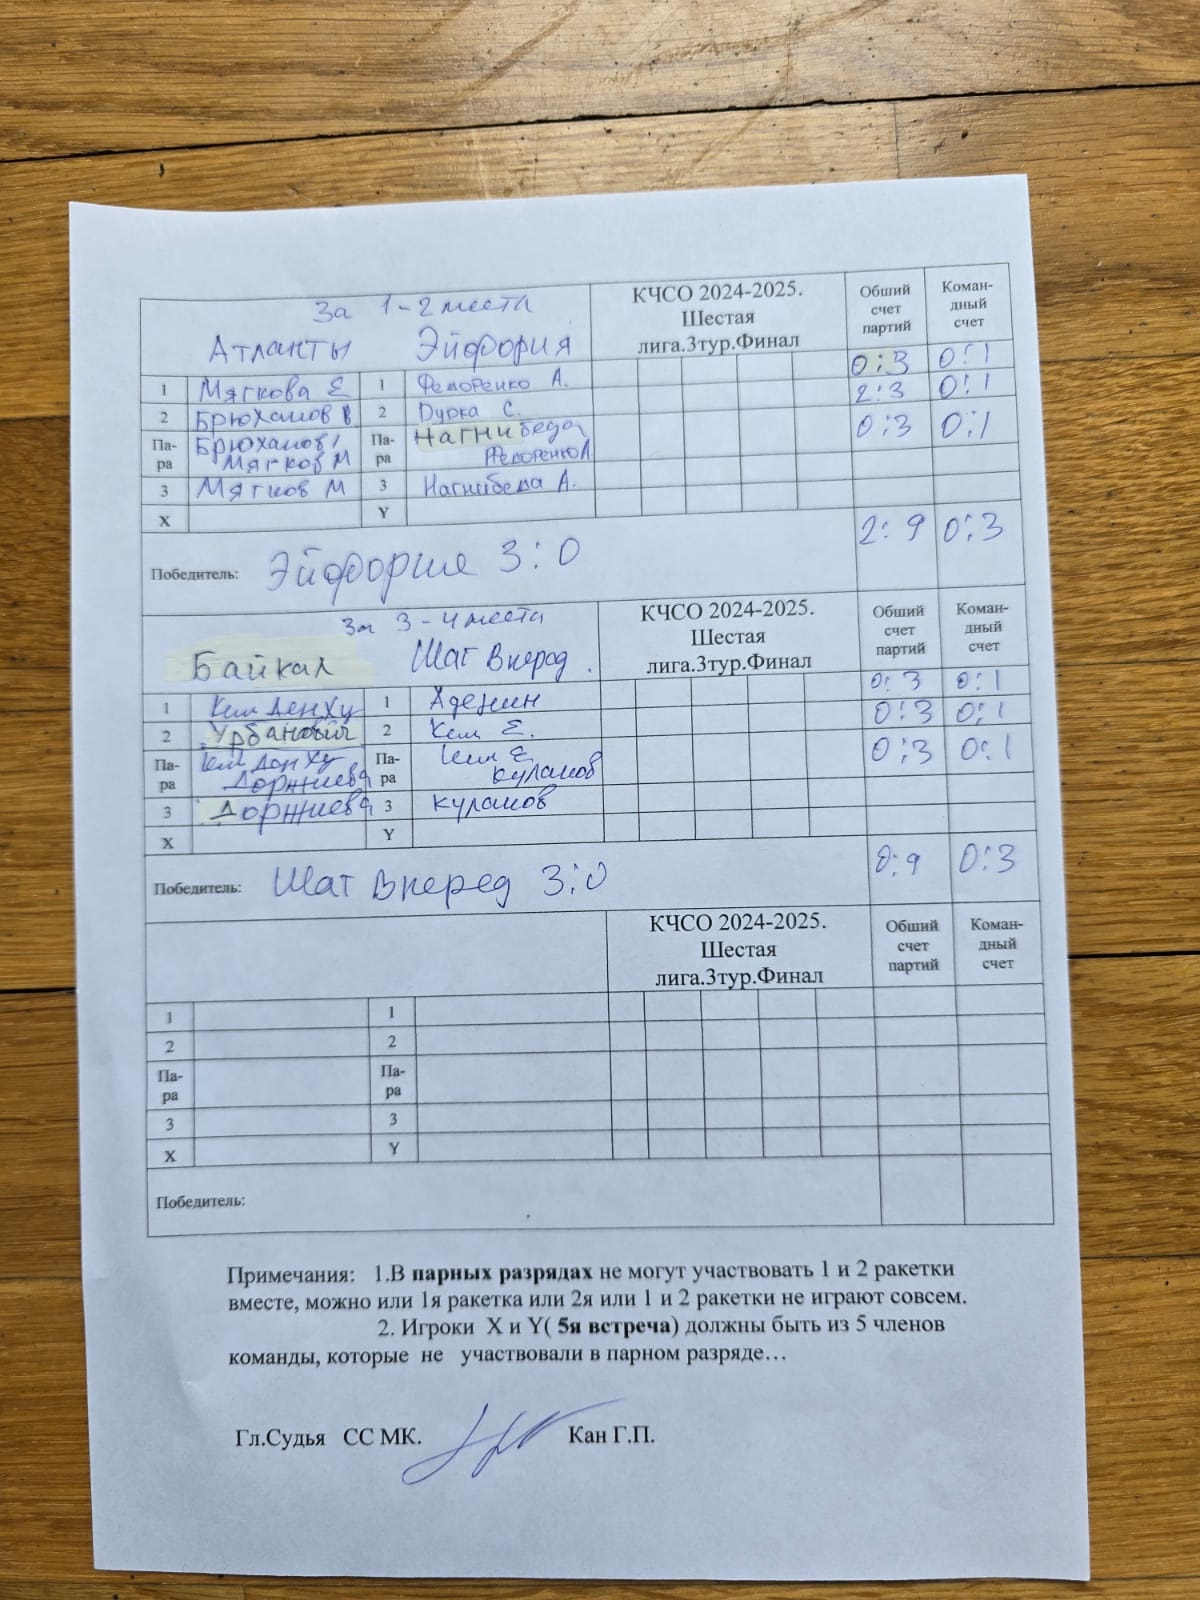 За 1-2 места
Атланты Эйфория
КЧСО 2024-2025.
Шестая
лига.3тур.Финал
Обший
счет
партий
Коман-
дный
счет
1 Мягкова Е 1 Федоренко А. 0:3 0:1
2 Брюханов В 2 Дурка С. 2:3 0:1
Па-
ра
Брюханов/
Мягков М
Па-
ра
Нагнибеда
Федоренко А
0:3 0:1
3 Мягков М 3 Нагнибеда А.
X Y
Победитель: Эйфория 3:0 2:9 0:3
За 3-4 места
Байкал Шаг вперед.
КЧСО 2024-2025.
Шестая
лига.3тур.Финал
Обший
счет
партий
Коман-
дный
счет
1 Ким Ден Ху 1 Аденин 0:3 0:1
2 Урбанович 2 Ким Е. 0:3 0:1
Па-
ра
Ким Ден Ху
Доржиева
Па-
ра
Ким Е
Куланов
0:3 0:1
3 Доржиева 3 Куланов
X Y
Победитель: Шаг вперед 3:0 0:9 0:3
КЧСО 2024-2025.
Шестая
лига.3тур.Финал
Обший
счет
партий
Коман-
дный
счет
1 1
2 2
Па-
ра
Па-
ра
3 3
X Y
Победитель:
Примечания: 1.В парных разрядах не могут участвовать 1 и 2 ракетки
вместе, можно или 1я ракетка или 2я или 1 и 2 ракетки не играют совсем.
2. Игроки X и Y( 5я встреча) должны быть из 5 членов
команды, которые не участвовали в парном разряде…
Гл.Судья СС МК. Кан Г.П.